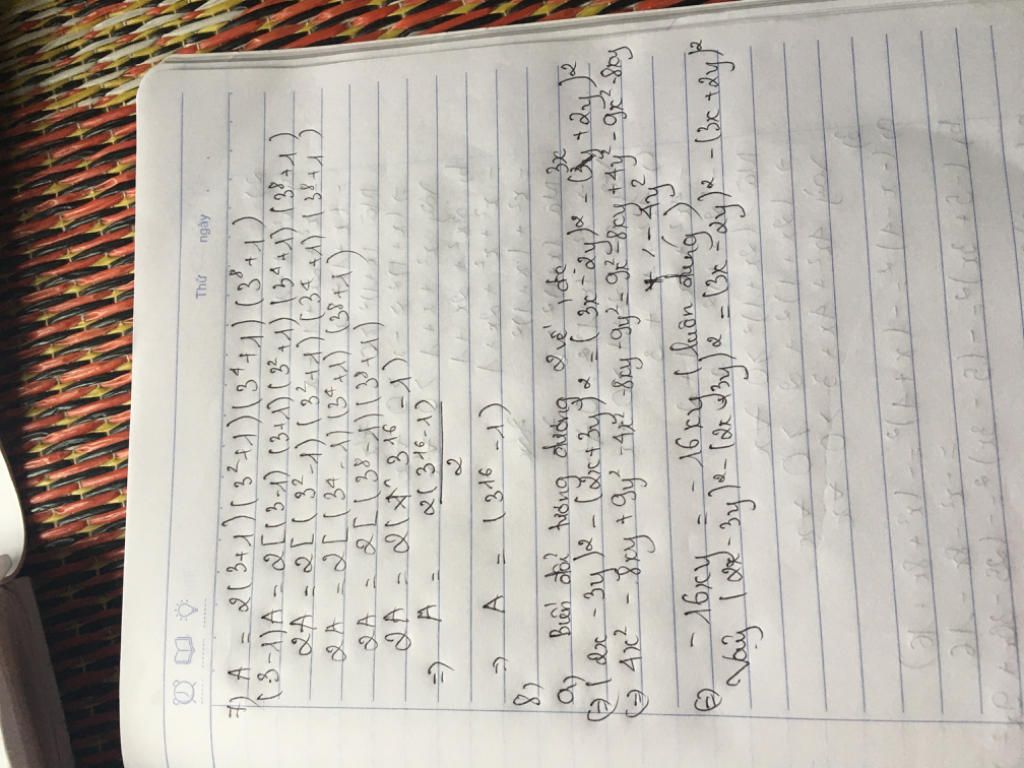 Thứ ngày
7) A = 2(3+1)(3²+1)(3⁴+1)(3⁸+1)
(3-1)A = 2[(3-1)(3+1)(3²+1)(3⁴+1)(3⁸+1)
2A = 2[(3²-1)(3²+1)(3⁴+1)(3⁸+1)
2A = 2[(3⁴-1)(3⁴+1)(3⁸+1)
2A = 2[(3⁸-1)(3⁸+1)
2A = 2(3¹⁶-1)
=> A = 2(3¹⁶-1)/2
=> A = (3¹⁶-1)
8)
a) Biến đổi tương đương 2 vế, đc
(=) (2x - 3y)² - (2x+3y)² = (3x - 2y)² - (3x + 2y)²
(=) 4x² - 8xy + 9y² - 4x² - 8xy - 9y² = 9x² - 8xy + 4y² - 9x² - 8xy - 4y²
(=) - 16xy = - 16xy (luôn đúng)
Vậy (2x - 3y)² - (2x+3y)² = (3x - 2y)² - (3x + 2y)²